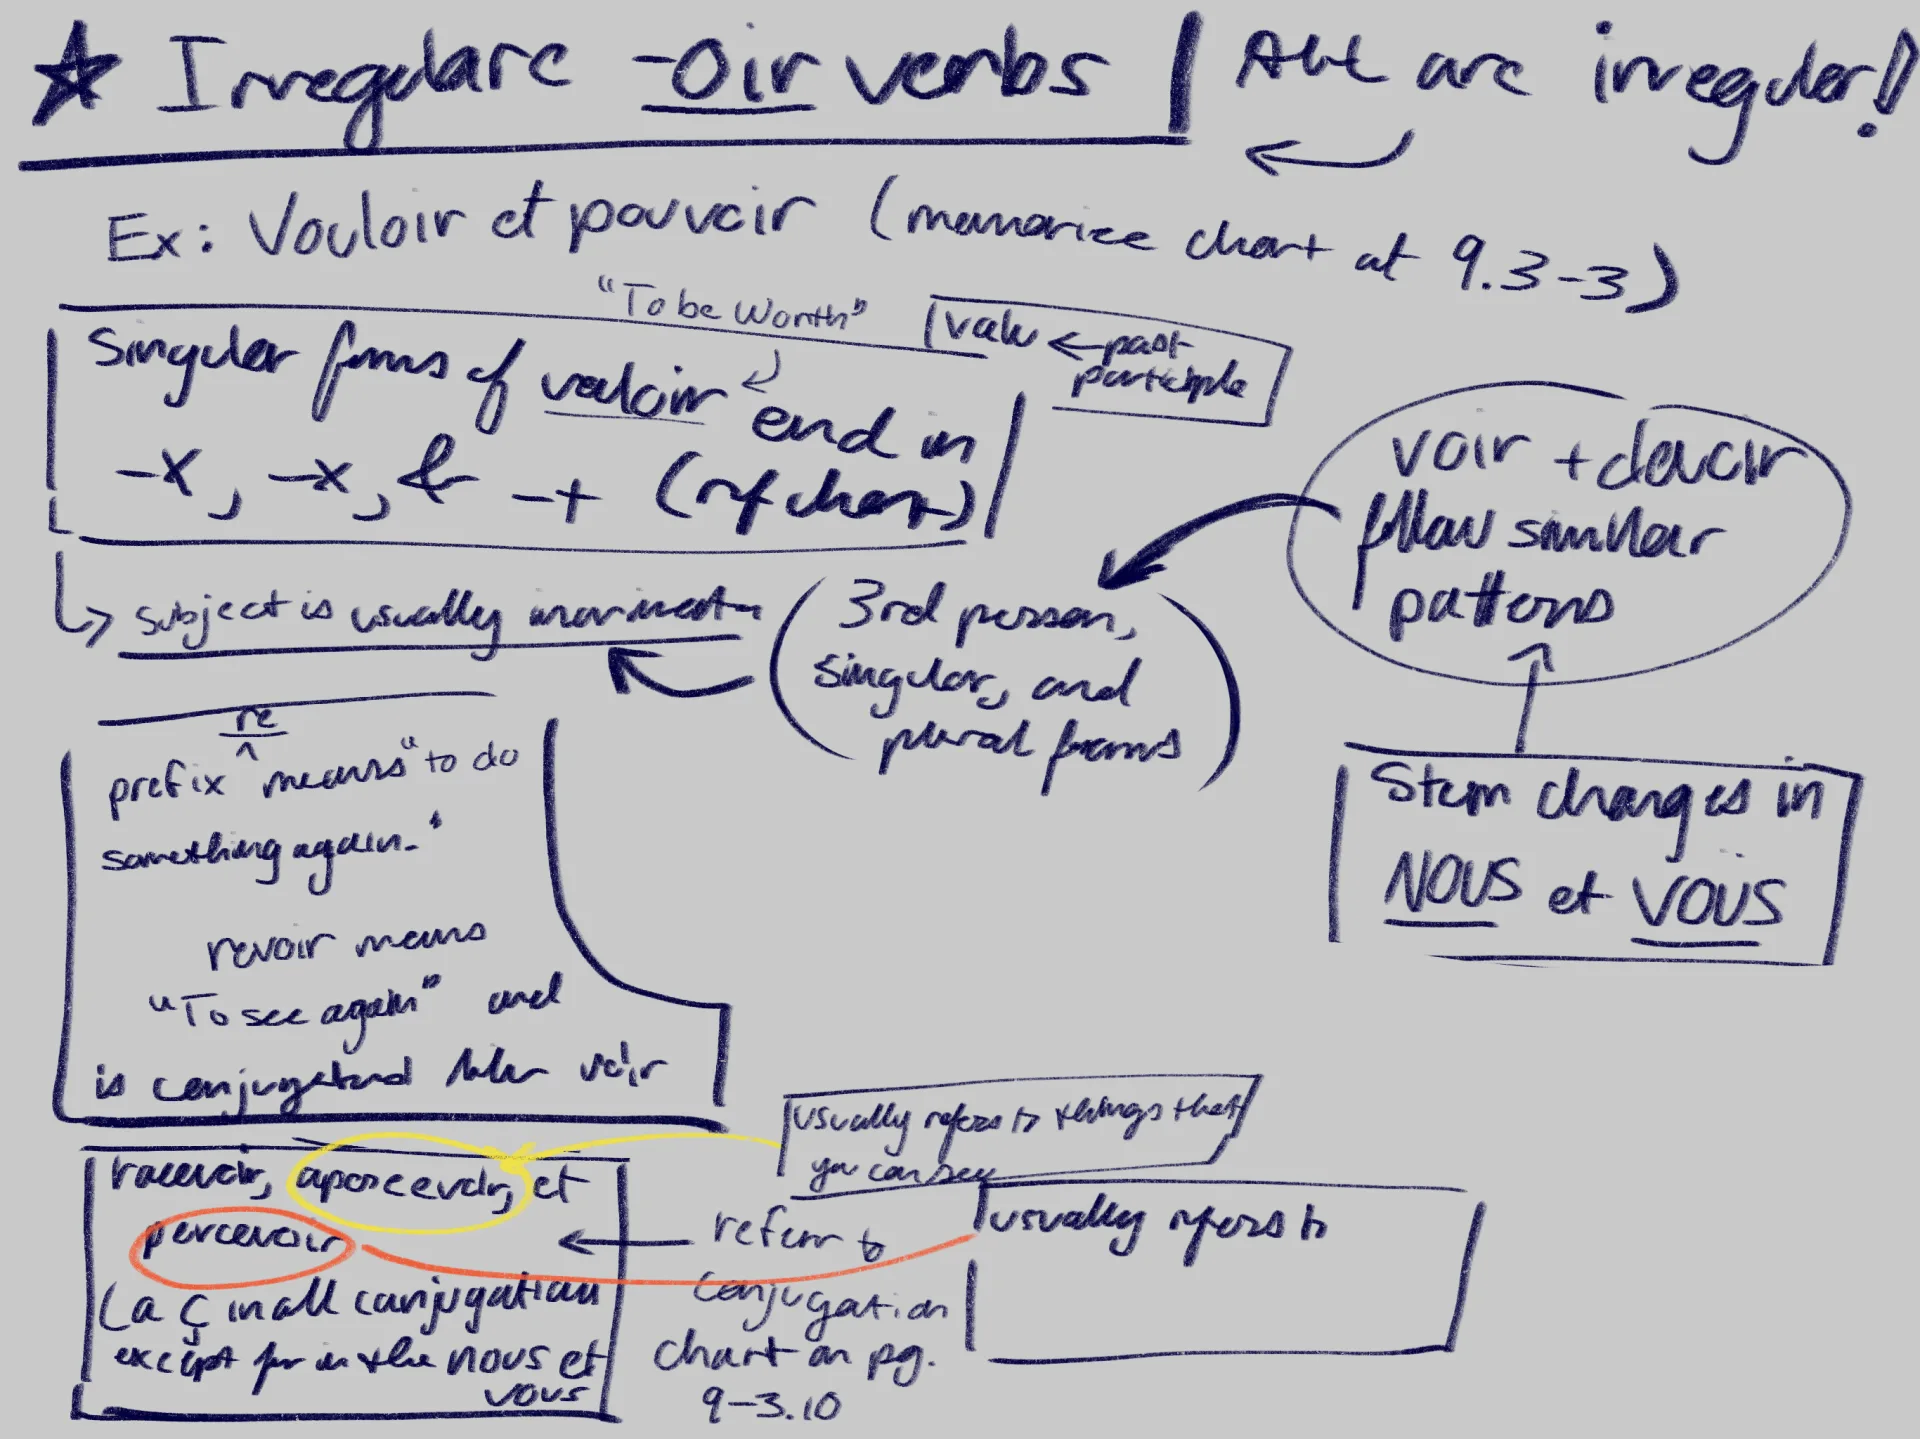 Irregulare -Oir verbs | ALL are irregular!
Ex: Vouloir et pouvoir (memorize chart at 9.3-3)
"To be Worth"
valu ← past
participle
Singular forms of valoir end in
-x, -x, & -t (ref chart)
voir + devoir
follow similar
patterns
Subject is usually
(3rd person,
singular, and
plural forms)
Stem changes in
NOUS et VOUS
re
prefix means "to do
something again."
revoir means
"To see again" and
is conjugated like voir
usually refers to things that
you can see
recevoir, apercevoir, et
percevoir
usually refers to
(a ç in all conjugation
except for in the nous et
vous
refer to
conjugation
chart on pg.
9-3.10